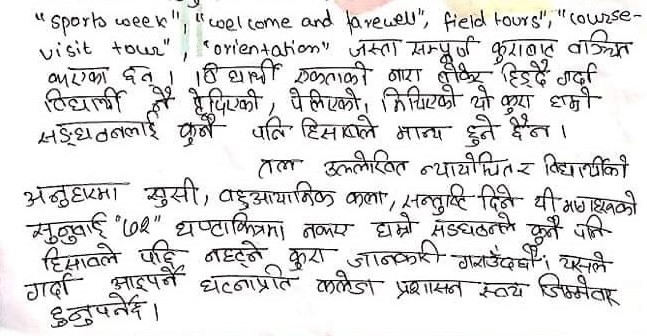 "sports week", "welcome and farewell", field tours", "course-
visit tour", "orientation" जस्ता सम्पूर्ण कुराबाट वञ्चित
गरेका छन् । विद्यार्थी एकताको नारा बोकेर हिड्दै गर्दा
विद्यार्थी नै हेपिएको, पेलिएको, मिचिएको यो कुरा हाम्रो
सङ्घठनलाई कुनै पनि हिसाबले मान्य हुने छैन ।
तल उल्लेखित न्यायोचित र विद्यार्थीको
अनुहारमा खुसी, बहुआयामिक कला, सन्तुष्टि दिने यी मागहरुको
सुनुवाई "७२" घण्टाभित्रमा नभए हाम्रो सङघठनले कुनै पनि
हिसाबले पछि नहट्ने कुरा जानकारी गराउँदछौं । यसले
गर्दा आइपर्ने घटनाप्रति कलेज प्रशासन स्वयं जिम्मेवार
हुनुपर्नेछ ।